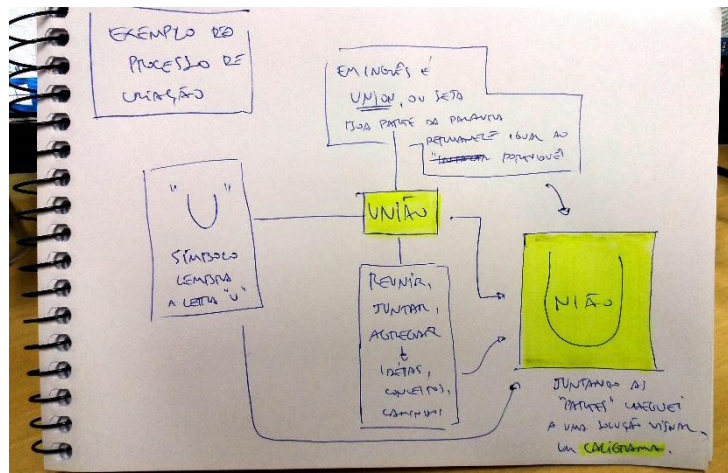 EXEMPLO DO
PROCESSO DE
CRIAÇÃO
EM INGLÊS É
UNION, OU SEJA
BOA PARTE DA PALAVRA
PERMANECE IGUAL AO
PORTUGUÊS
"U"
SÍMBOLO
LEMBRA
A LETRA "U"
UNIÃO
REUNIR,
JUNTAR,
AGREGAR
+
IDÉIAS,
CONCEITOS,
CAMINHOS
U
NIÃO
JUNTANDO AS
"PARTES" CHEGUEI
A UMA SOLUÇÃO VISUAL,
UM CALIGRAMA.